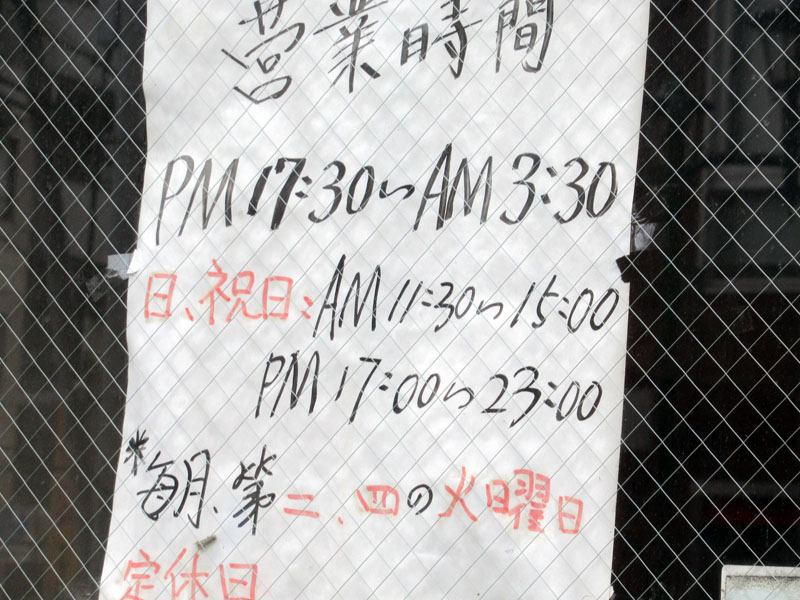 営業時間
PM 17:30〜AM 3:30
日、祝日:AM 11:30〜15:00
PM 17:00〜23:00
*毎月、第二、四の火曜日
定休日